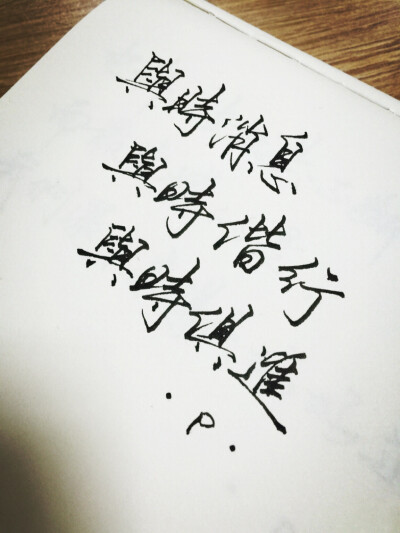 與時消息
與時偕行
與時俱進
.p.